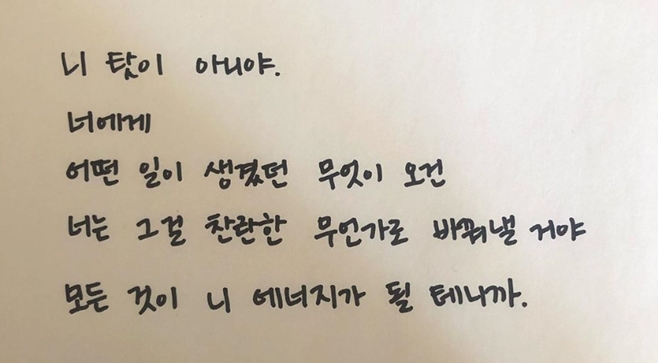 니 탓이 아니야.
너에게
어떤 일이 생겼던 무엇이 오건
너는 그걸 찬란한 무언가로 바꿔낼 거야
모든 것이 니 에너지가 될 테니까.